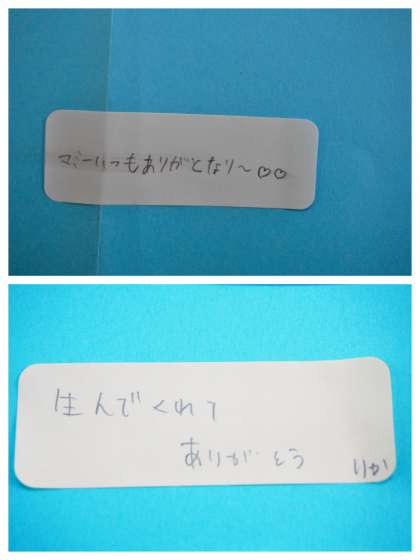 マミーいつもありがとなり〜♡♡
生んでくれて
ありがとう
りか